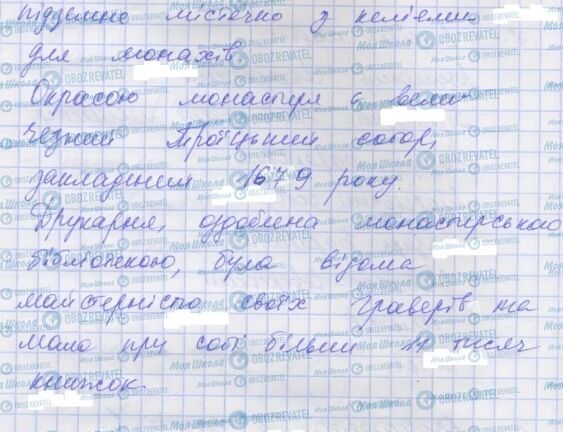 підземне містечко з келіями
для монахів.
Окрасою монастиря є вели-
чезний Троїцький собор,
закладений 1679 року.
Друкарня, оздоблена монастирською
бібліотекою, була відома
майстерністю своїх граверів та
мала при собі більш 11 тисяч
книжок